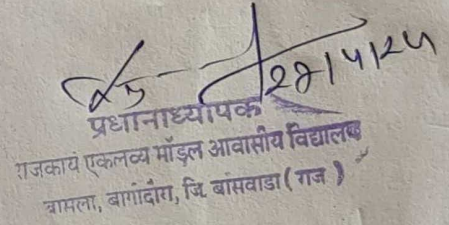 28/4/24
प्रधानाध्यापक
राजकीय एकलव्य मॉडल आवासीय विद्यालय
बागीदौरा, जि. बांसवाडा ( राज )